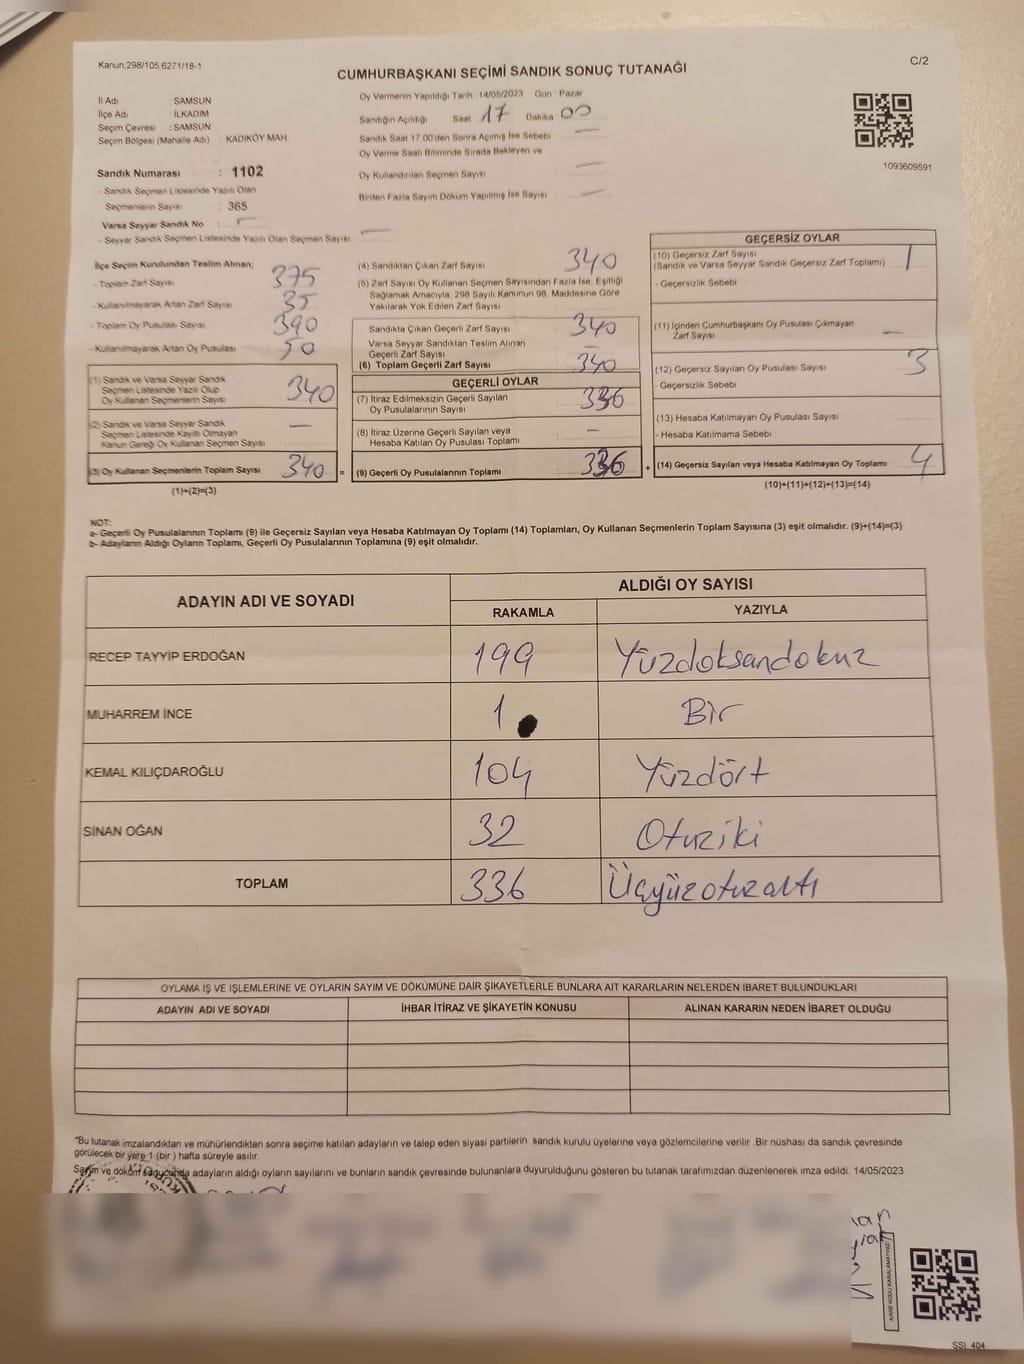 Kanun.298/105.6271/18-1
C/2
CUMHURBAŞKANI SEÇİMİ SANDIK SONUÇ TUTANAĞI
İl Adı : SAMSUN
İlçe Adı : İLKADIM
Seçim Çevresi : SAMSUN
Seçim Bölgesi (Mahalle Adı) : KADIKÖY MAH
Sandık Numarası : 1102
- Sandık Seçmen Listesinde Yazılı Olan
Seçmenlerin Sayısı : 365
Varsa Seyyar Sandık No :
- Seyyar Sandık Seçmen Listesinde Yazılı Olan Seçmen Sayısı
Oy Vermenin Yapıldığı Tarih : 14/05/2023 Gün : Pazar
Sandığın Açıldığı Saat 17 Dakika 00
Sandık Saat 17.00'den Sonra Açılmış İse Sebebi —
Oy Verme Saati Bitiminde Sırada Bekleyen ve
Oy Kullandırılan Seçmen Sayısı —
Birden Fazla Sayım Döküm Yapılmış İse Sayısı —
1093609591
İlçe Seçim Kurulundan Teslim Alınan;
- Toplam Zarf Sayısı 375
- Kullanılmayarak Artan Zarf Sayısı 35
- Toplam Oy Pusulası Sayısı 390
- Kullanılmayarak Artan Oy Pusulası 50
(1) Sandık ve Varsa Seyyar Sandık
Seçmen Listesinde Yazılı Olup
Oy Kullanan Seçmenlerin Sayısı 340
(2) Sandık ve Varsa Seyyar Sandık
Seçmen Listesinde Kayıtlı Olmayan
Kanun Gereği Oy Kullanan Seçmen Sayısı —
(3) Oy Kullanan Seçmenlerin Toplam Sayısı 340 =
(1)+(2)=(3)
(4) Sandıktan Çıkan Zarf Sayısı 340
(5) Zarf Sayısı Oy Kullanan Seçmen Sayısından Fazla İse, Eşitliği
Sağlamak Amacıyla, 298 Sayılı Kanunun 98. Maddesine Göre
Yakılarak Yok Edilen Zarf Sayısı
Sandıkta Çıkan Geçerli Zarf Sayısı 340
Varsa Seyyar Sandıktan Teslim Alınan
Geçerli Zarf Sayısı —
(6) Toplam Geçerli Zarf Sayısı 340
GEÇERLİ OYLAR
(7) İtiraz Edilmeksizin Geçerli Sayılan
Oy Pusulalarının Sayısı 336
(8) İtiraz Üzerine Geçerli Sayılan veya
Hesaba Katılan Oy Pusulası Toplamı —
(9) Geçerli Oy Pusulalarının Toplamı : 336 +
GEÇERSİZ OYLAR
(10) Geçersiz Zarf Sayısı
(Sandık ve Varsa Seyyar Sandık Geçersiz Zarf Toplamı) 1
- Geçersizlik Sebebi :
(11) İçinden Cumhurbaşkanı Oy Pusulası Çıkmayan
Zarf Sayısı —
(12) Geçersiz Sayılan Oy Pusulası Sayısı 3
- Geçersizlik Sebebi :
(13) Hesaba Katılmayan Oy Pusulası Sayısı
- Hesaba Katılmama Sebebi :
(14) Geçersiz Sayılan veya Hesaba Katılmayan Oy Toplamı 4
(10)+(11)+(12)+(13)=(14)
NOT:
a- Geçerli Oy Pusulalarının Toplamı (9) ile Geçersiz Sayılan veya Hesaba Katılmayan Oy Toplamı (14) Toplamları, Oy Kullanan Seçmenlerin Toplam Sayısına (3) eşit olmalıdır. (9)+(14)=(3)
b- Adayların Aldığı Oyların Toplamı, Geçerli Oy Pusulalarının Toplamına (9) eşit olmalıdır.
ADAYIN ADI VE SOYADI
ALDIĞI OY SAYISI
RAKAMLA YAZIYLA
RECEP TAYYİP ERDOĞAN 199 Yüzdoksandokuz
MUHARREM İNCE 1 Bir
KEMAL KILIÇDAROĞLU 104 Yüzdört
SİNAN OĞAN 32 Otuziki
TOPLAM 336 Üçyüzotuzaltı
OYLAMA İŞ VE İŞLEMLERİNE VE OYLARIN SAYIM VE DÖKÜMÜNE DAİR ŞİKAYETLERLE BUNLARA AİT KARARLARIN NELERDEN İBARET BULUNDUKLARI
ADAYIN ADI VE SOYADI İHBAR İTİRAZ VE ŞİKAYETİN KONUSU ALINAN KARARIN NEDEN İBARET OLDUĞU
*Bu tutanak imzalandıktan ve mühürlendikten sonra seçime katılan adayların ve talep eden siyasi partilerin sandık kurulu üyelerine veya gözlemcilerine verilir. Bir nüshası da sandık çevresinde
görülecek bir yere 1 (bir) hafta süreyle asılır.
Sayım ve döküm sonucunda adayların aldığı oyların sayılarını ve bunların sandık çevresinde bulunanlara duyurulduğunu gösteren bu tutanak tarafımızdan düzenlenerek imza edildi. 14/05/2023
KARE KODU KARALAMAYINIZ
SSI 404